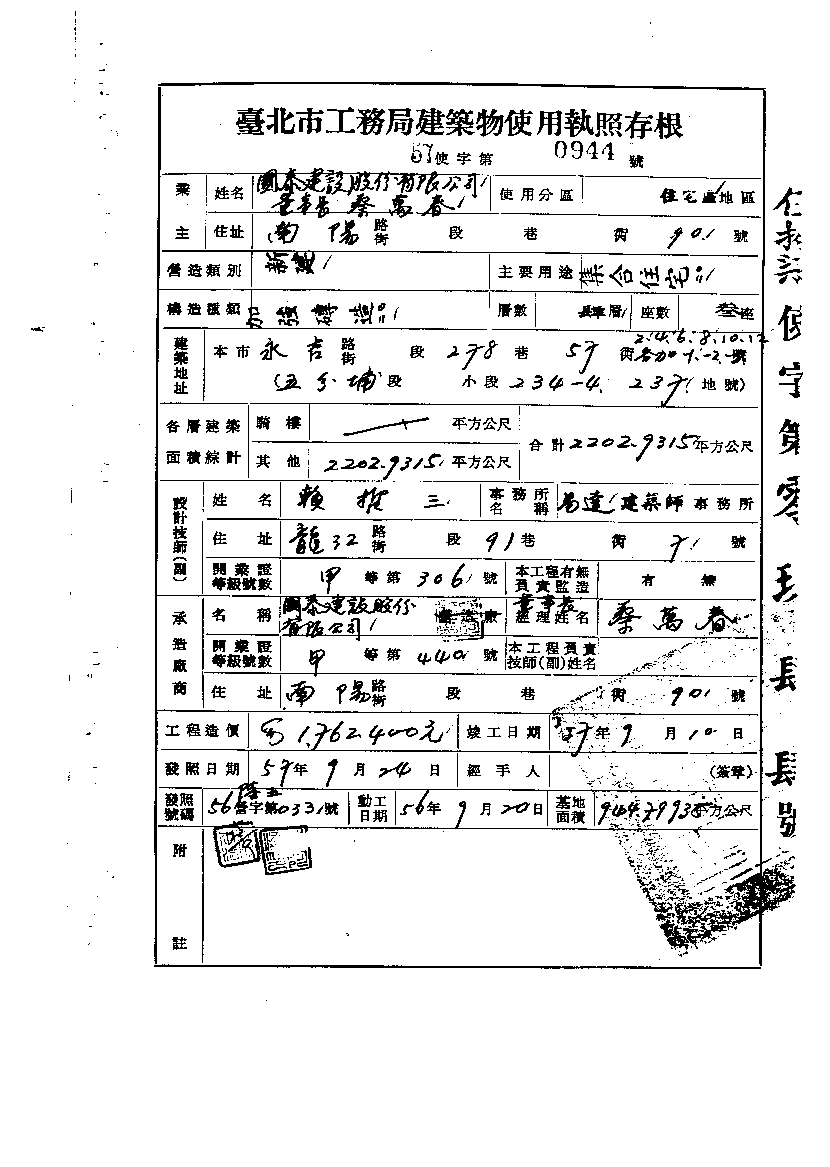 臺北市工務局建築物使用執照存根
57使字第 0944 號
業主 姓名 國泰建設股份有限公司 董事長 蔡萬春 使用分區 住宅區地區
住址 南陽路街 段 巷 衖 90 號
營造類別 新建 主要用途 集合住宅
構造種類 加強磚造 層數 肆層 座數 叁座
2.4.6.8.10.12
建築地址 本市永吉路街 段 278巷 57衖各加-1.-2.號
(五分埔段 小段 234-4. 237 地號)
各層建築面積綜計 騎樓 平方公尺 合計2202.9315平方公尺
其他 2202.9315 平方公尺
設計技師(副) 姓名 賴 三 事務所名稱 建築師事務所
住址 龍32路街 段 91巷 衖 號
開業證等級號數 甲等第306號 本工程有無負責監造 有 無
承造廠商 名稱 國泰建設股份有限公司 董事長 經理姓名 蔡萬春
開業證等級號數 甲等第440號 本工程負責技師(副)姓名
住址 南陽路街 段 巷 衖 90 號
工程造價 1,762.400元 竣工日期 57年9月10日
發照日期 57年9月24日 經手人 (簽章)
發照號碼 56營字第0331號 動工日期 56年9月20日 基地面積 平方公尺
附註
使字第零玖肆肆號